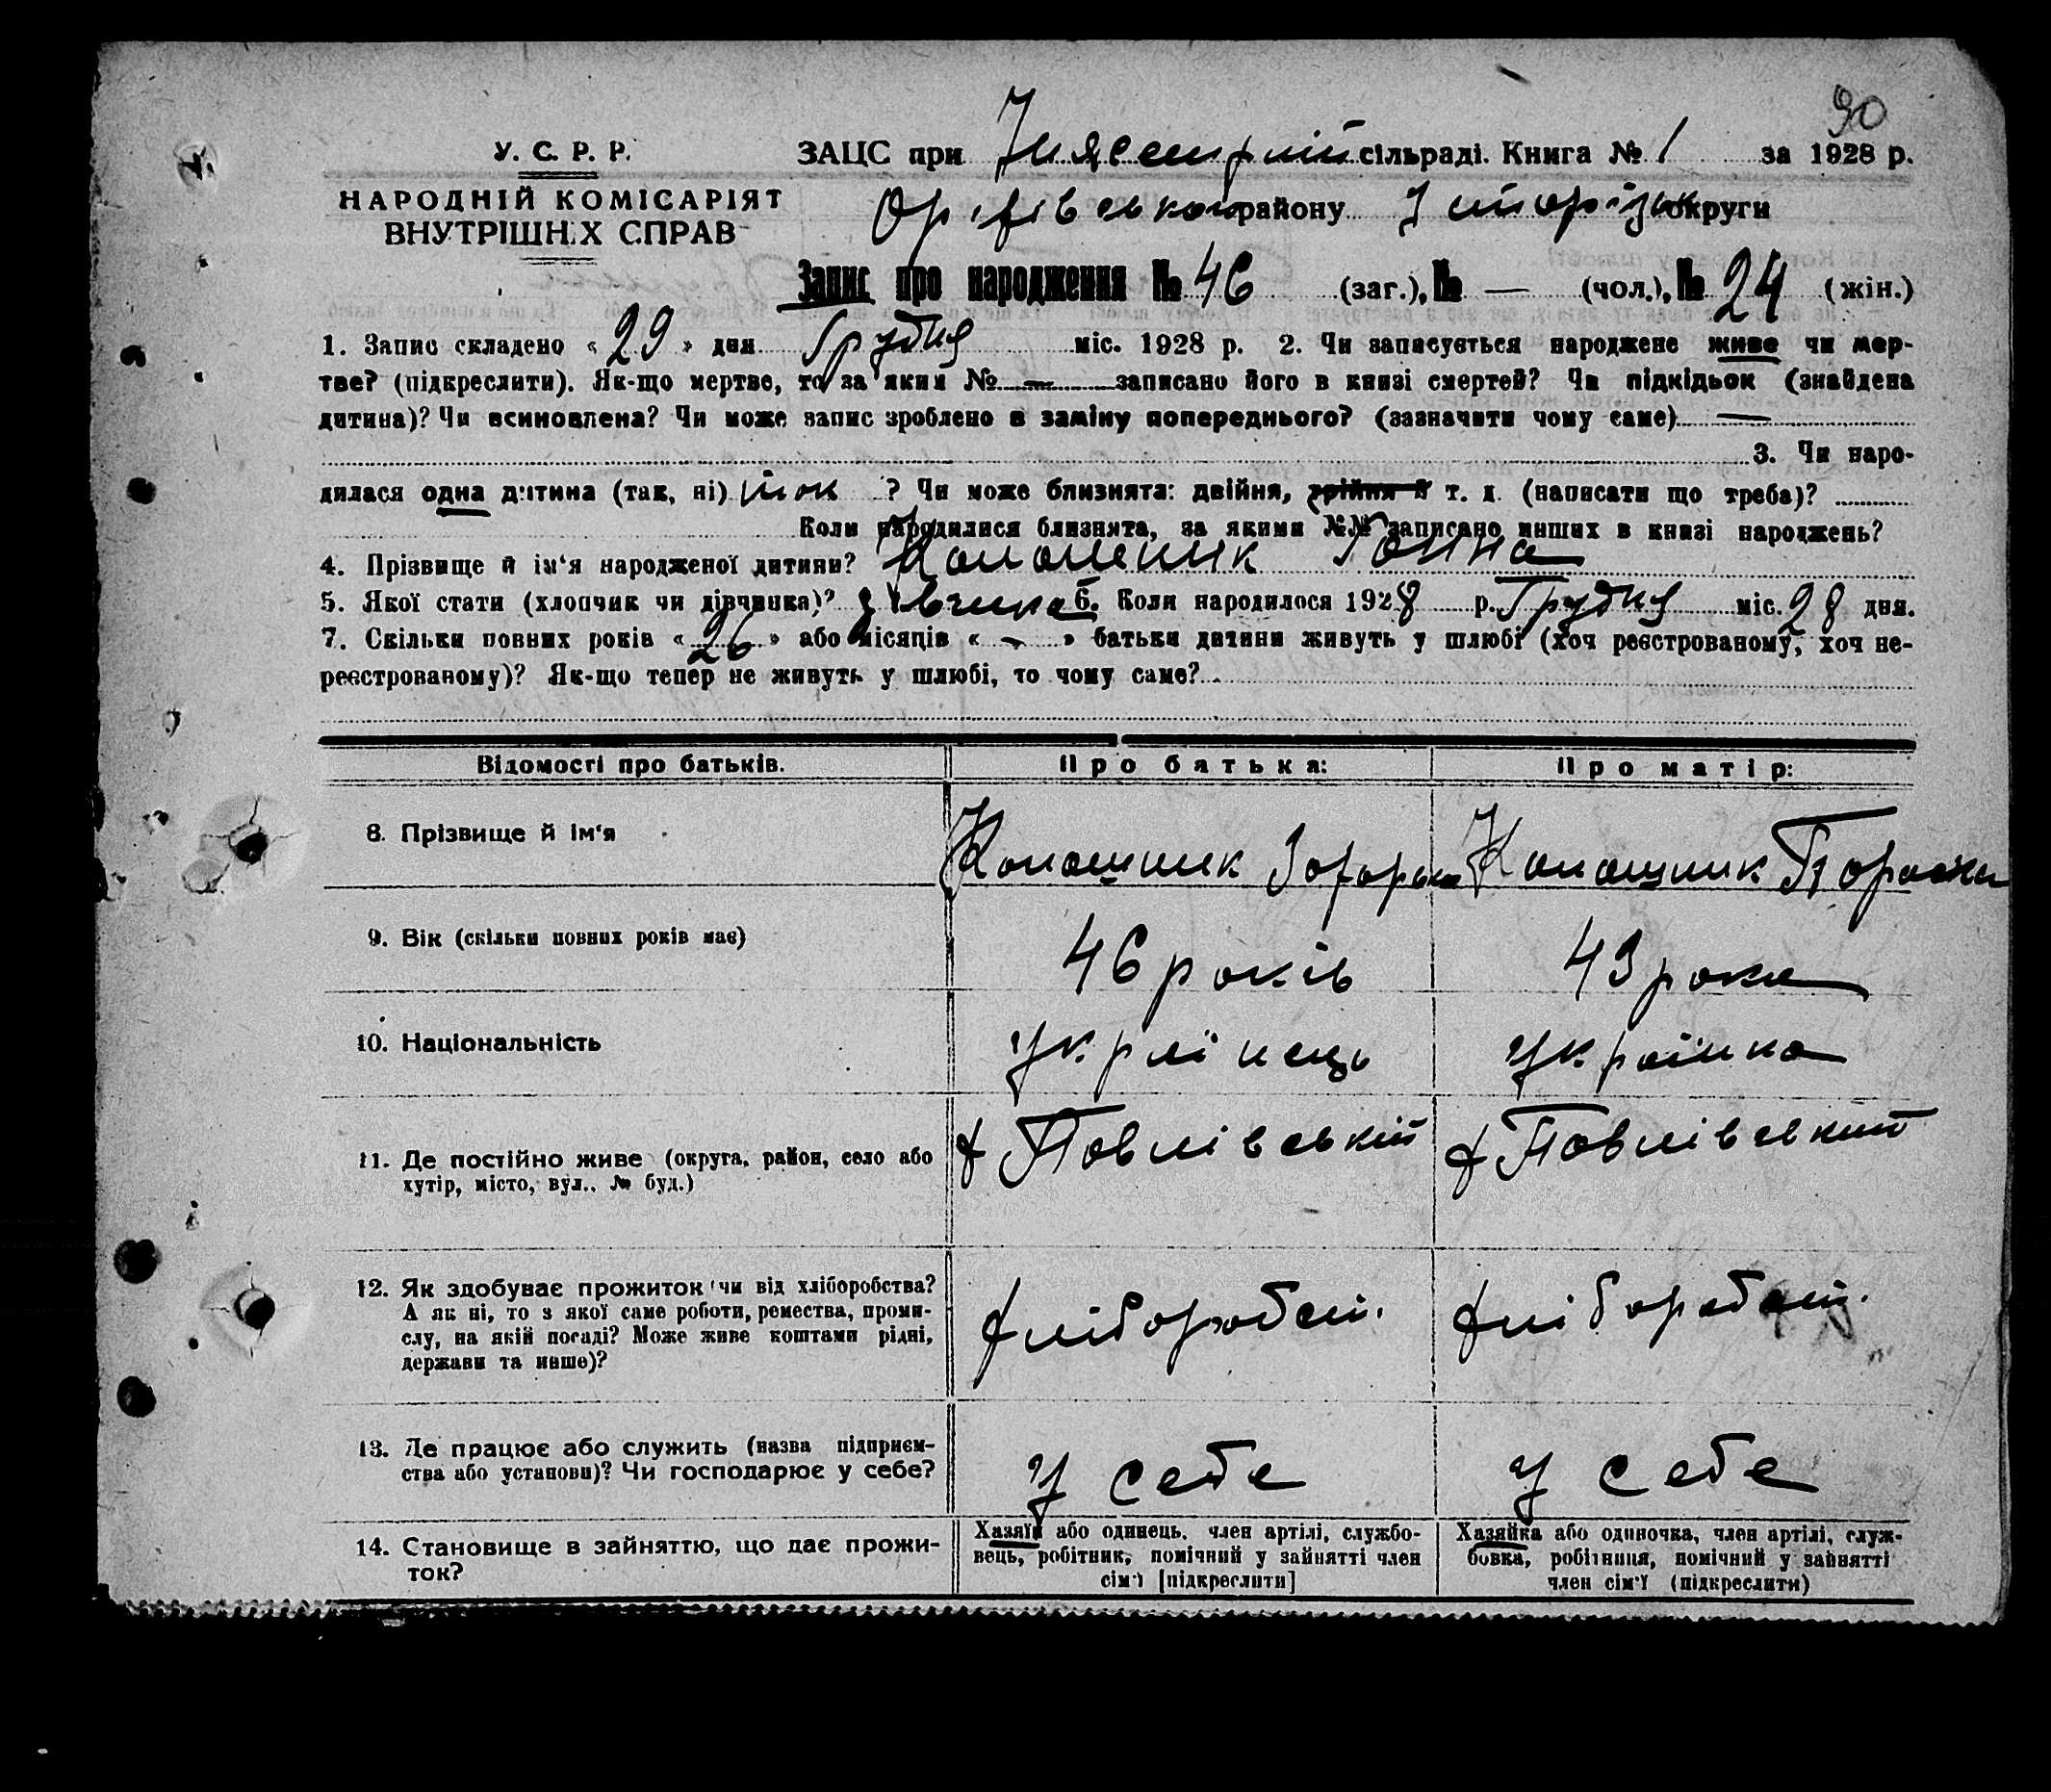 90
У. С. Р. Р.
НАРОДНІЙ КОМІСАРІЯТ
ВНУТРІШНІХ СПРАВ
ЗАЦС при сільраді. Книга № 1 за 1928 р.
району округи
Запис про народження № 46 (заг.), № — (чол.), № 24 (жін.)
1. Запис складено « 29 » дня Грудня міс. 1928 р. 2. Чи записується народжене живе чи мер-
тве? (підкреслити). Як-що мертве, то за яким № — записано його в книзі смертей? Чи підкідьок (знайдена
дитина)? Чи всиновлена? Чи може запис зроблено в заміну попереднього? (зазначити чому саме) —
3. Чи наро-
дилася одна дитина (так, ні) так ? Чи може близнята: двійня, трійня й т. д. (написати що треба)?
Коли народилися близнята, за якими №№ записано инших в книзі народжень?
4. Прізвище й ім'я народженої дитини? Ганна
5. Якої стати (хлопчик чи дівчинка)? дівчинка 6. Коли народилося 1928 р. Грудня міс. 28 дня.
7. Скільки повних років « 26 » або місяців « - » батьки дитини живуть у шлюбі (хоч реєстрованому, хоч не-
реєстрованому)? Як-що тепер не живуть у шлюбі, то чому саме?
Відомості про батьків. Про батька: Про матір:
8. Прізвище й ім'я
9. Вік (скільки повних років має) 46 років 43 роки
10. Національність Украінець Украінка
11. Де постійно живе (округа, район, село або
хутір, місто, вул., № буд.)
х Павлівський х Павлівський
12. Як здобуває прожиток (чи від хліборобства?
А як ні, то з якої саме роботи, ремества, проми-
слу, на якій посаді? Може живе коштами рідні,
держави та инше)?
хліборобст. хліборобст.
13. Де працює або служить (назва підприєм-
ства або установи)? Чи господарює у себе?
У себе У себе
14. Становище в зайняттю, що дає прожи-
ток?
Хазяїн або одинець, член артілі, службо-
вець, робітник, помічний у зайнятті член
сім'ї [підкреслити]
Хазяйка або одиночка, член артілі, служ-
бовка, робітниця, помічний у зайнятті
член сім'ї (підкреслити)